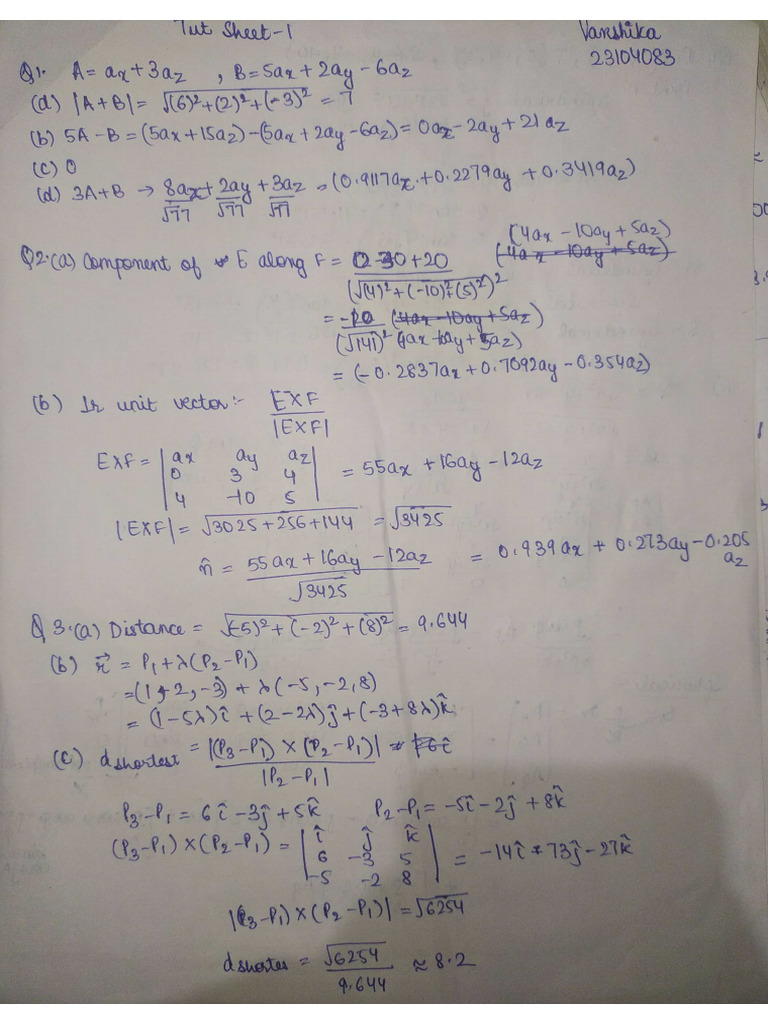 Tut Sheet-1
Vanshika
23104083
Q1. A = ax + 3az , B = 5ax + 2ay - 6az
(a) |A+B| = √(6)²+(2)²+(-3)² = 7
(b) 5A-B = (5ax+15az)-(5ax+2ay-6az) = 0ax-2ay+21az
(c) 0
(d) 3A+B → 8ax/√77 + 2ay/√77 + 3az/√77 = (0.9117ax + 0.2279ay + 0.3419az)
Q2.(a) Component of E along F = 0-30+20 / (√(4)²+(-10)²+(5)²)² (4ax-10ay+5az)
= -10 / (√141)² (4ax-10ay+5az)
= (-0.2837ax+0.7092ay-0.354az)
(b) Ir unit vector:- EXF / |EXF|
EXF = | ax ay az |
0 3 4
4 -10 5
= 55ax+16ay-12az
|EXF| = √3025+256+144 = √3425
n̂ = 55ax+16ay-12az / √3425 = 0.939ax + 0.273ay-0.205az
Q3.(a) Distance = √(-5)²+(-2)²+(8)² = 9.644
(b) r⃗ = P1+λ(P2-P1)
=(1,2,-3) + λ(-5,-2,8)
= (1-5λ)î + (2-2λ)ĵ+(-3+8λ)k̂
(c) dshortest = |(P3-P1) X (P2-P1)| / |P2-P1|
P3-P1 = 6î-3ĵ+5k̂ P2-P1 = -5î-2ĵ+8k̂
(P3-P1)X(P2-P1) = | î ĵ k̂ |
6 -3 5
-5 -2 8
= -14î-73ĵ-27k̂
|(P3-P1)X(P2-P1)| = √6254
dshortes = √6254 / 9.644 ≈ 8.2